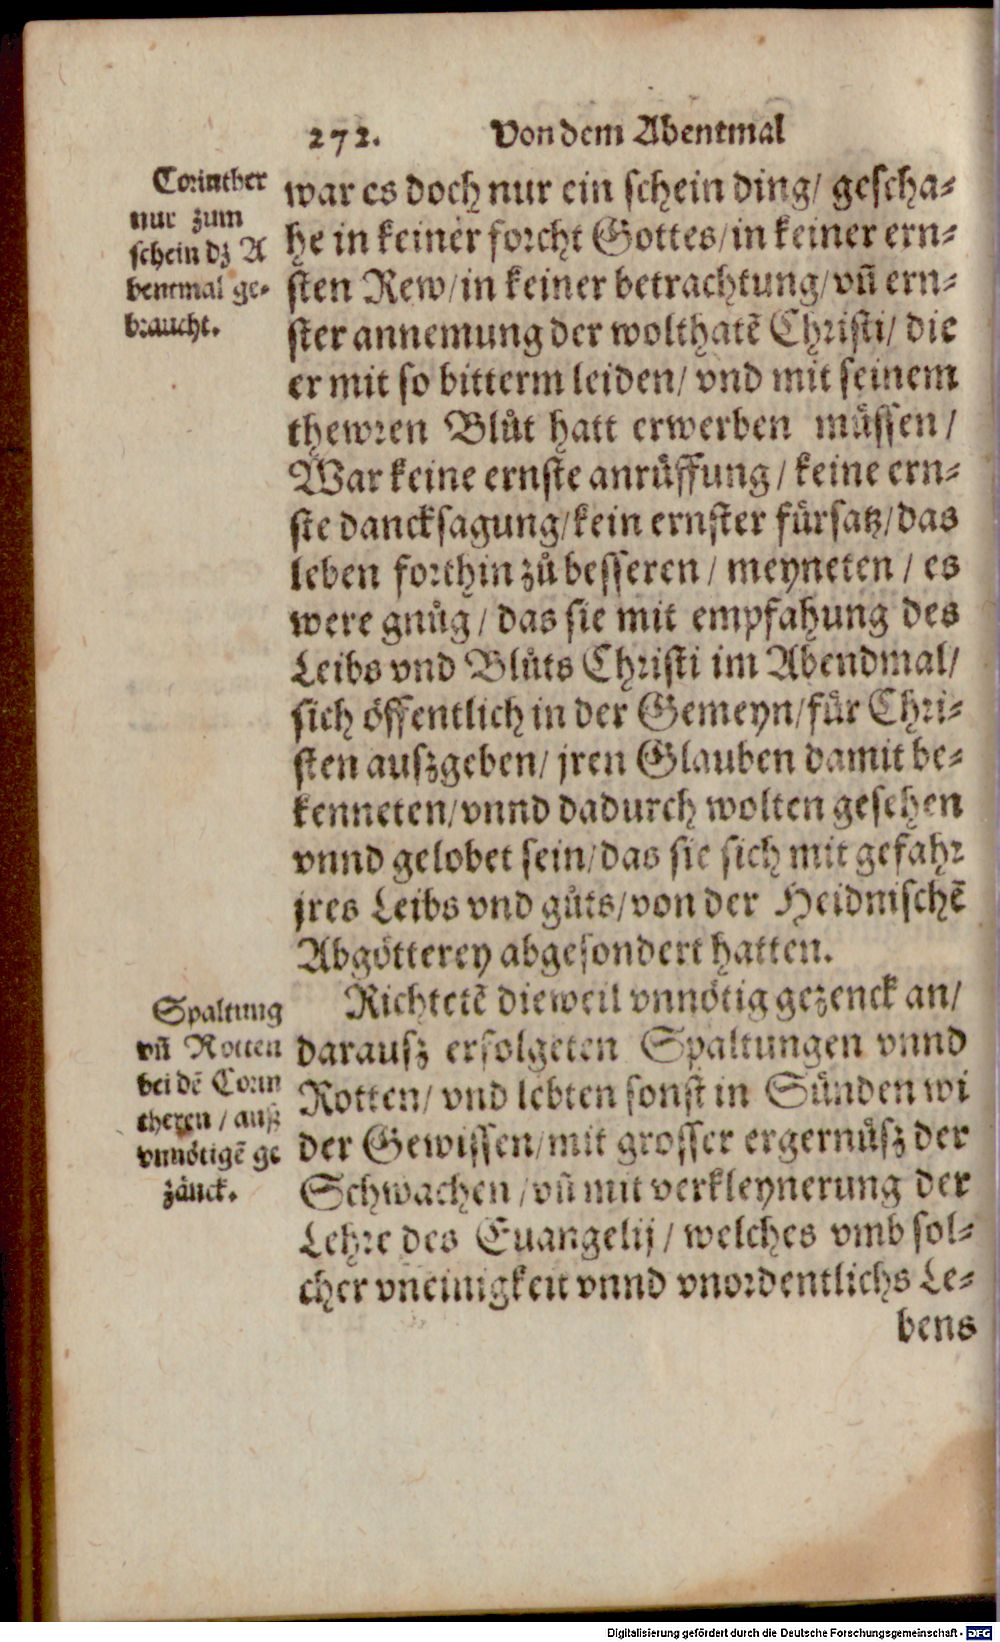 272. Von dem Abentmal
Corinther
nur zum
schein dz A
bentmal ge-
braucht.
war es doch nur ein schein ding/ gescha-
he in keiner forcht Gottes/in keiner ern-
sten Rew/in keiner betrachtung/vn̄ ern-
ster annemung der wolthatē Christi/ die
er mit so bitterm leiden/ vnd mit seinem
thewren Blůt hatt erwerben müssen/
War keine ernste anrůffung/ keine ern-
ste dancksagung/kein ernster fürsatz/das
leben forthin zů besseren/ meyneten/ es
were gnůg/ das sie mit empfahung des
Leibs vnd Blůts Christi im Abendmal/
sich öffentlich in der Gemeyn/für Chri-
sten auszgeben/ jren Glauben damit be-
kenneten/vnnd dadurch wolten gesehen
vnnd gelobet sein/das sie sich mit gefahr
jres Leibs vnd gůts/von der Heidnischē
Abgötterey abgesondert hatten.
Spaltung
vn̄ Rotten
bei dē Corin
theren/ ausz
vnnötigē ge
zänck.
Richtetē dieweil vnnötig gezenck an/
darausz erfolgeten Spaltungen vnnd
Rotten/ vnd lebten sonst in Sünden wi
der Gewissen/mit grosser ergernüsz der
Schwachen/vn̄ mit verkleynerung der
Lehre des Euangelij/ welches vmb sol-
cher vneinigkeit vnnd vnordentlichs Le-
bens
Digitalisierung gefördert durch die Deutsche Forschungsgemeinschaft - DFG